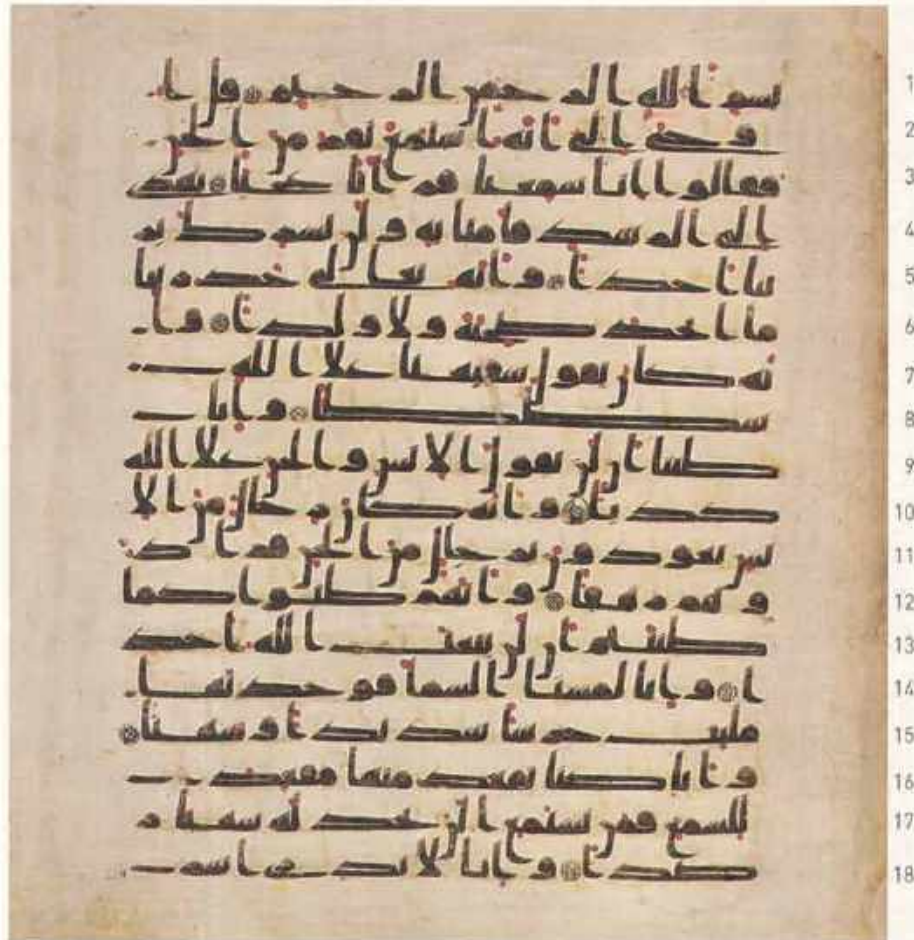 بسم الله الرحمن الرحيم قل ا 1
وحي الي انه استمع نفر من الجن 2
فقالوا انا سمعنا قرانا عجبا يهدي 3
الى الرشد فامنا به ولن نشرك بر 4
بنا احدا وانه تعلى جد ربنا 5
ما اتخذ صحبة ولا ولدا وا 6
نه كان يقول سفيهنا علا الله 7
شططا وانا 8
ظننا ان لن تقول الانس والجن علا الله 9
كذبا وانه كان رجال من الا 10
نس يعوذون برجال من الجن فزاد 11
وهم رهقا وانهم ظنوا كما 12
ظننتم ان لن يبعث الله احد 13
ا وانا لمسنا السما فوجدنها 14
ملئت حرسا شديدا وشهبا 15
وانا كنا نقعد منها مقعد 16
للسمع فمن يستمع الن يجد له شهبا ر 17
صدا وانا لا ندري اشر 18